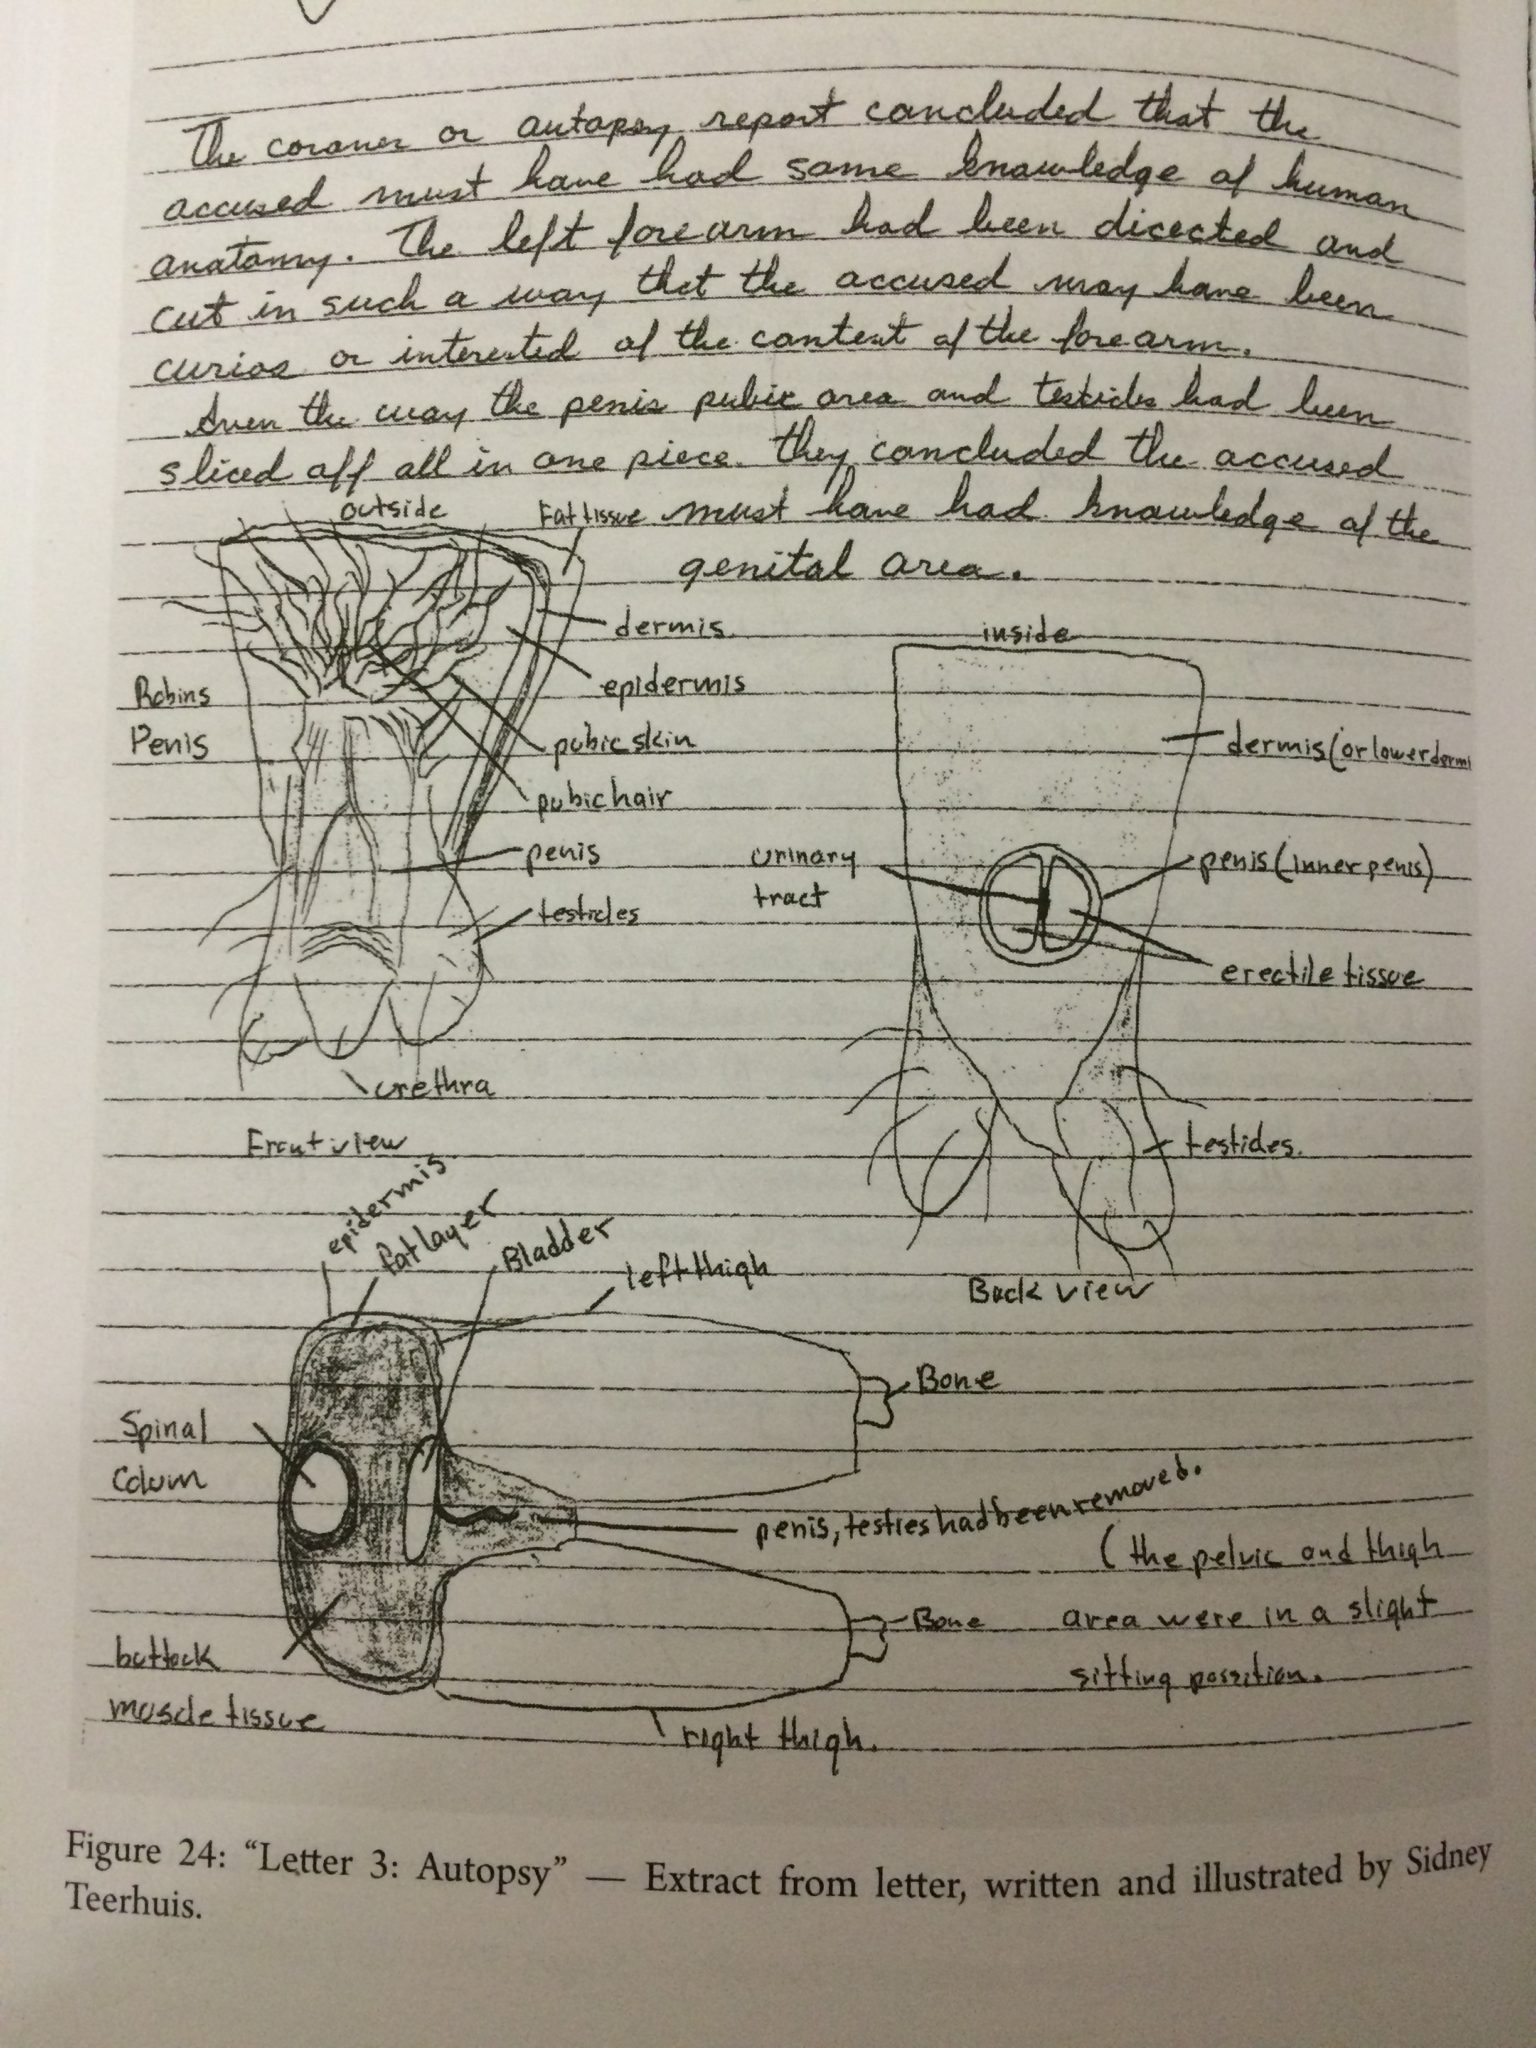 The coroner or autopsy report concluded that the
accused must have had some knowledge of human
anatomy. The left forearm had been dicected and
cut in such a way that the accused may have been
curios or interested of the content of the forearm.
Even the way the penis pubic area and testicles had been
sliced off all in one piece. They concluded the accused
must have had knowledge of the
genital area.
outside
Fat tissue
dermis
epidermis
Robins
Penis
pubic skin
pubic hair
penis
testicles
urethra
Front view
inside
dermis (or lower dermi
urinary
tract
penis (inner penis)
erectile tissue
testicles
Back view
epidermis
fat layer
Bladder
left thigh
Bone
Spinal
Colum
penis, testies had been removed.
(the pelvic and thigh
area were in a slight
sitting possition.
Bone
buttock
muscle tissue
right thigh.
Figure 24: “Letter 3: Autopsy” — Extract from letter, written and illustrated by Sidney
Teerhuis.